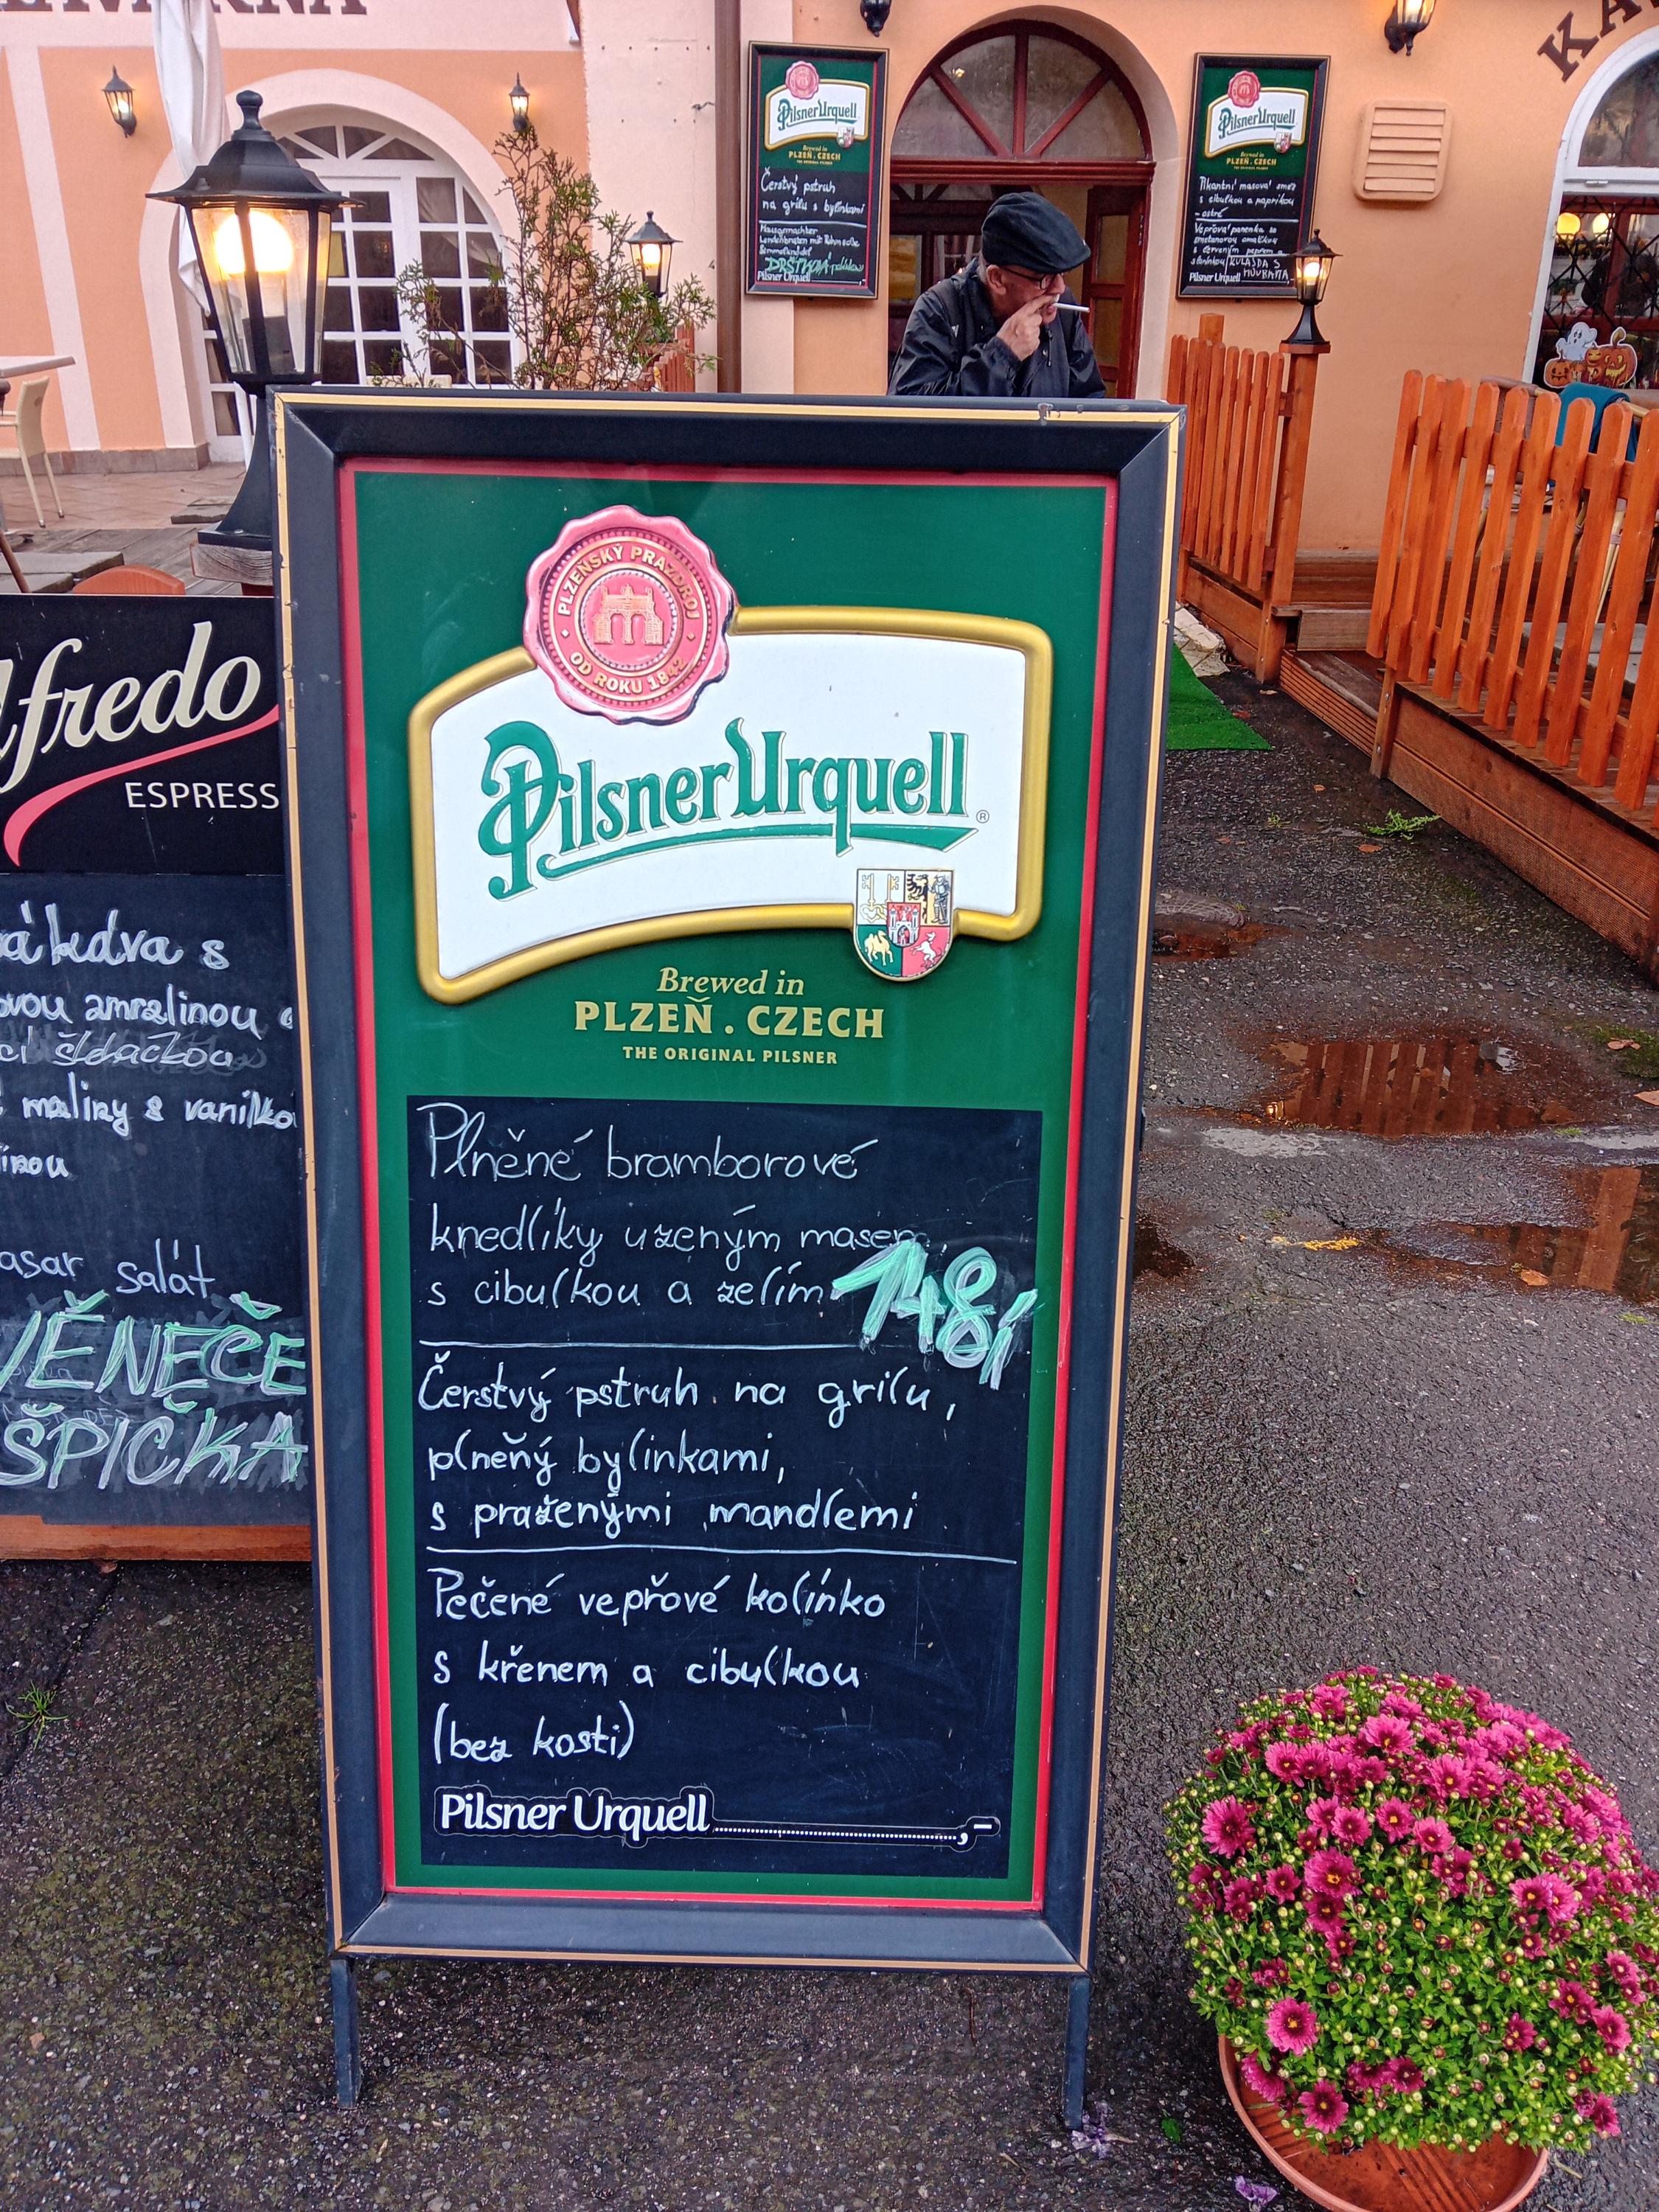 KA
Pilsner Urquell
Brewed in
PLZEŇ . CZECH
THE ORIGINAL PILSNER
Čerstvý pstruh
na grilu s bylinkami
Hausgemachter
DRŠTKOVÁ polévka
Pilsner Urquell
Pilsner Urquell
Brewed in
PLZEŇ . CZECH
THE ORIGINAL PILSNER
Pikantní masová směs
s cibulkou a paprikou
- ostré
Vepřová panenka se
smetanovou omáčkou
s červeným pepřem a
slaninkou KULAJDA S
HOUBAMA
Pilsner Urquell
fredo
ESPRESS
s
malizy s vanilko
salát
VĚNEČE
ŠPIČKA
PLZEŇSKÝ PRAZDROJ
OD ROKU 1842
Pilsner Urquell ®
Brewed in
PLZEŇ . CZECH
THE ORIGINAL PILSNER
Plněné bramborové
knedlíky uzeným masem
s cibulkou a zelím 148,
Čerstvý pstruh na grilu,
plněný bylinkami,
s praženými mandlemi
Pečené vepřové kolínko
s křenem a cibulkou
(bez kosti)
Pilsner Urquell ,-